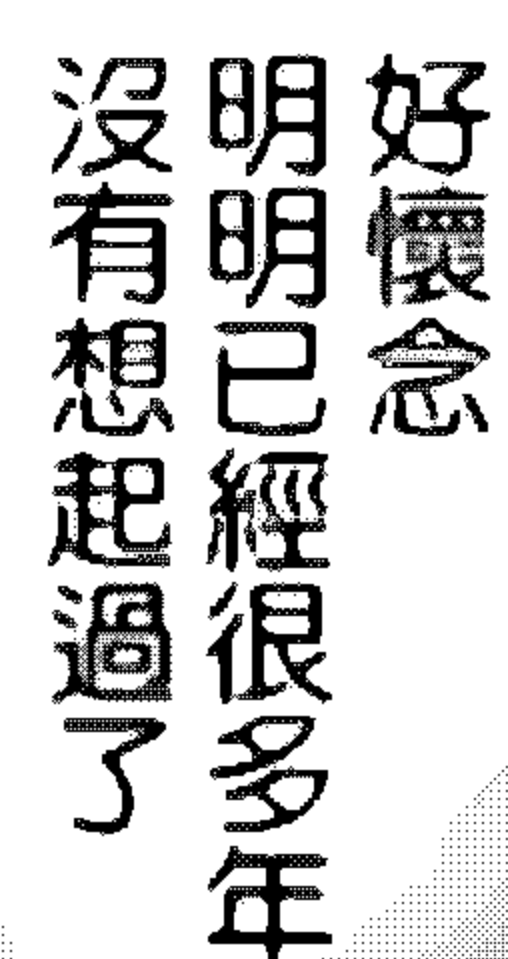 好懷念
明明已經很多年
沒有想起過了